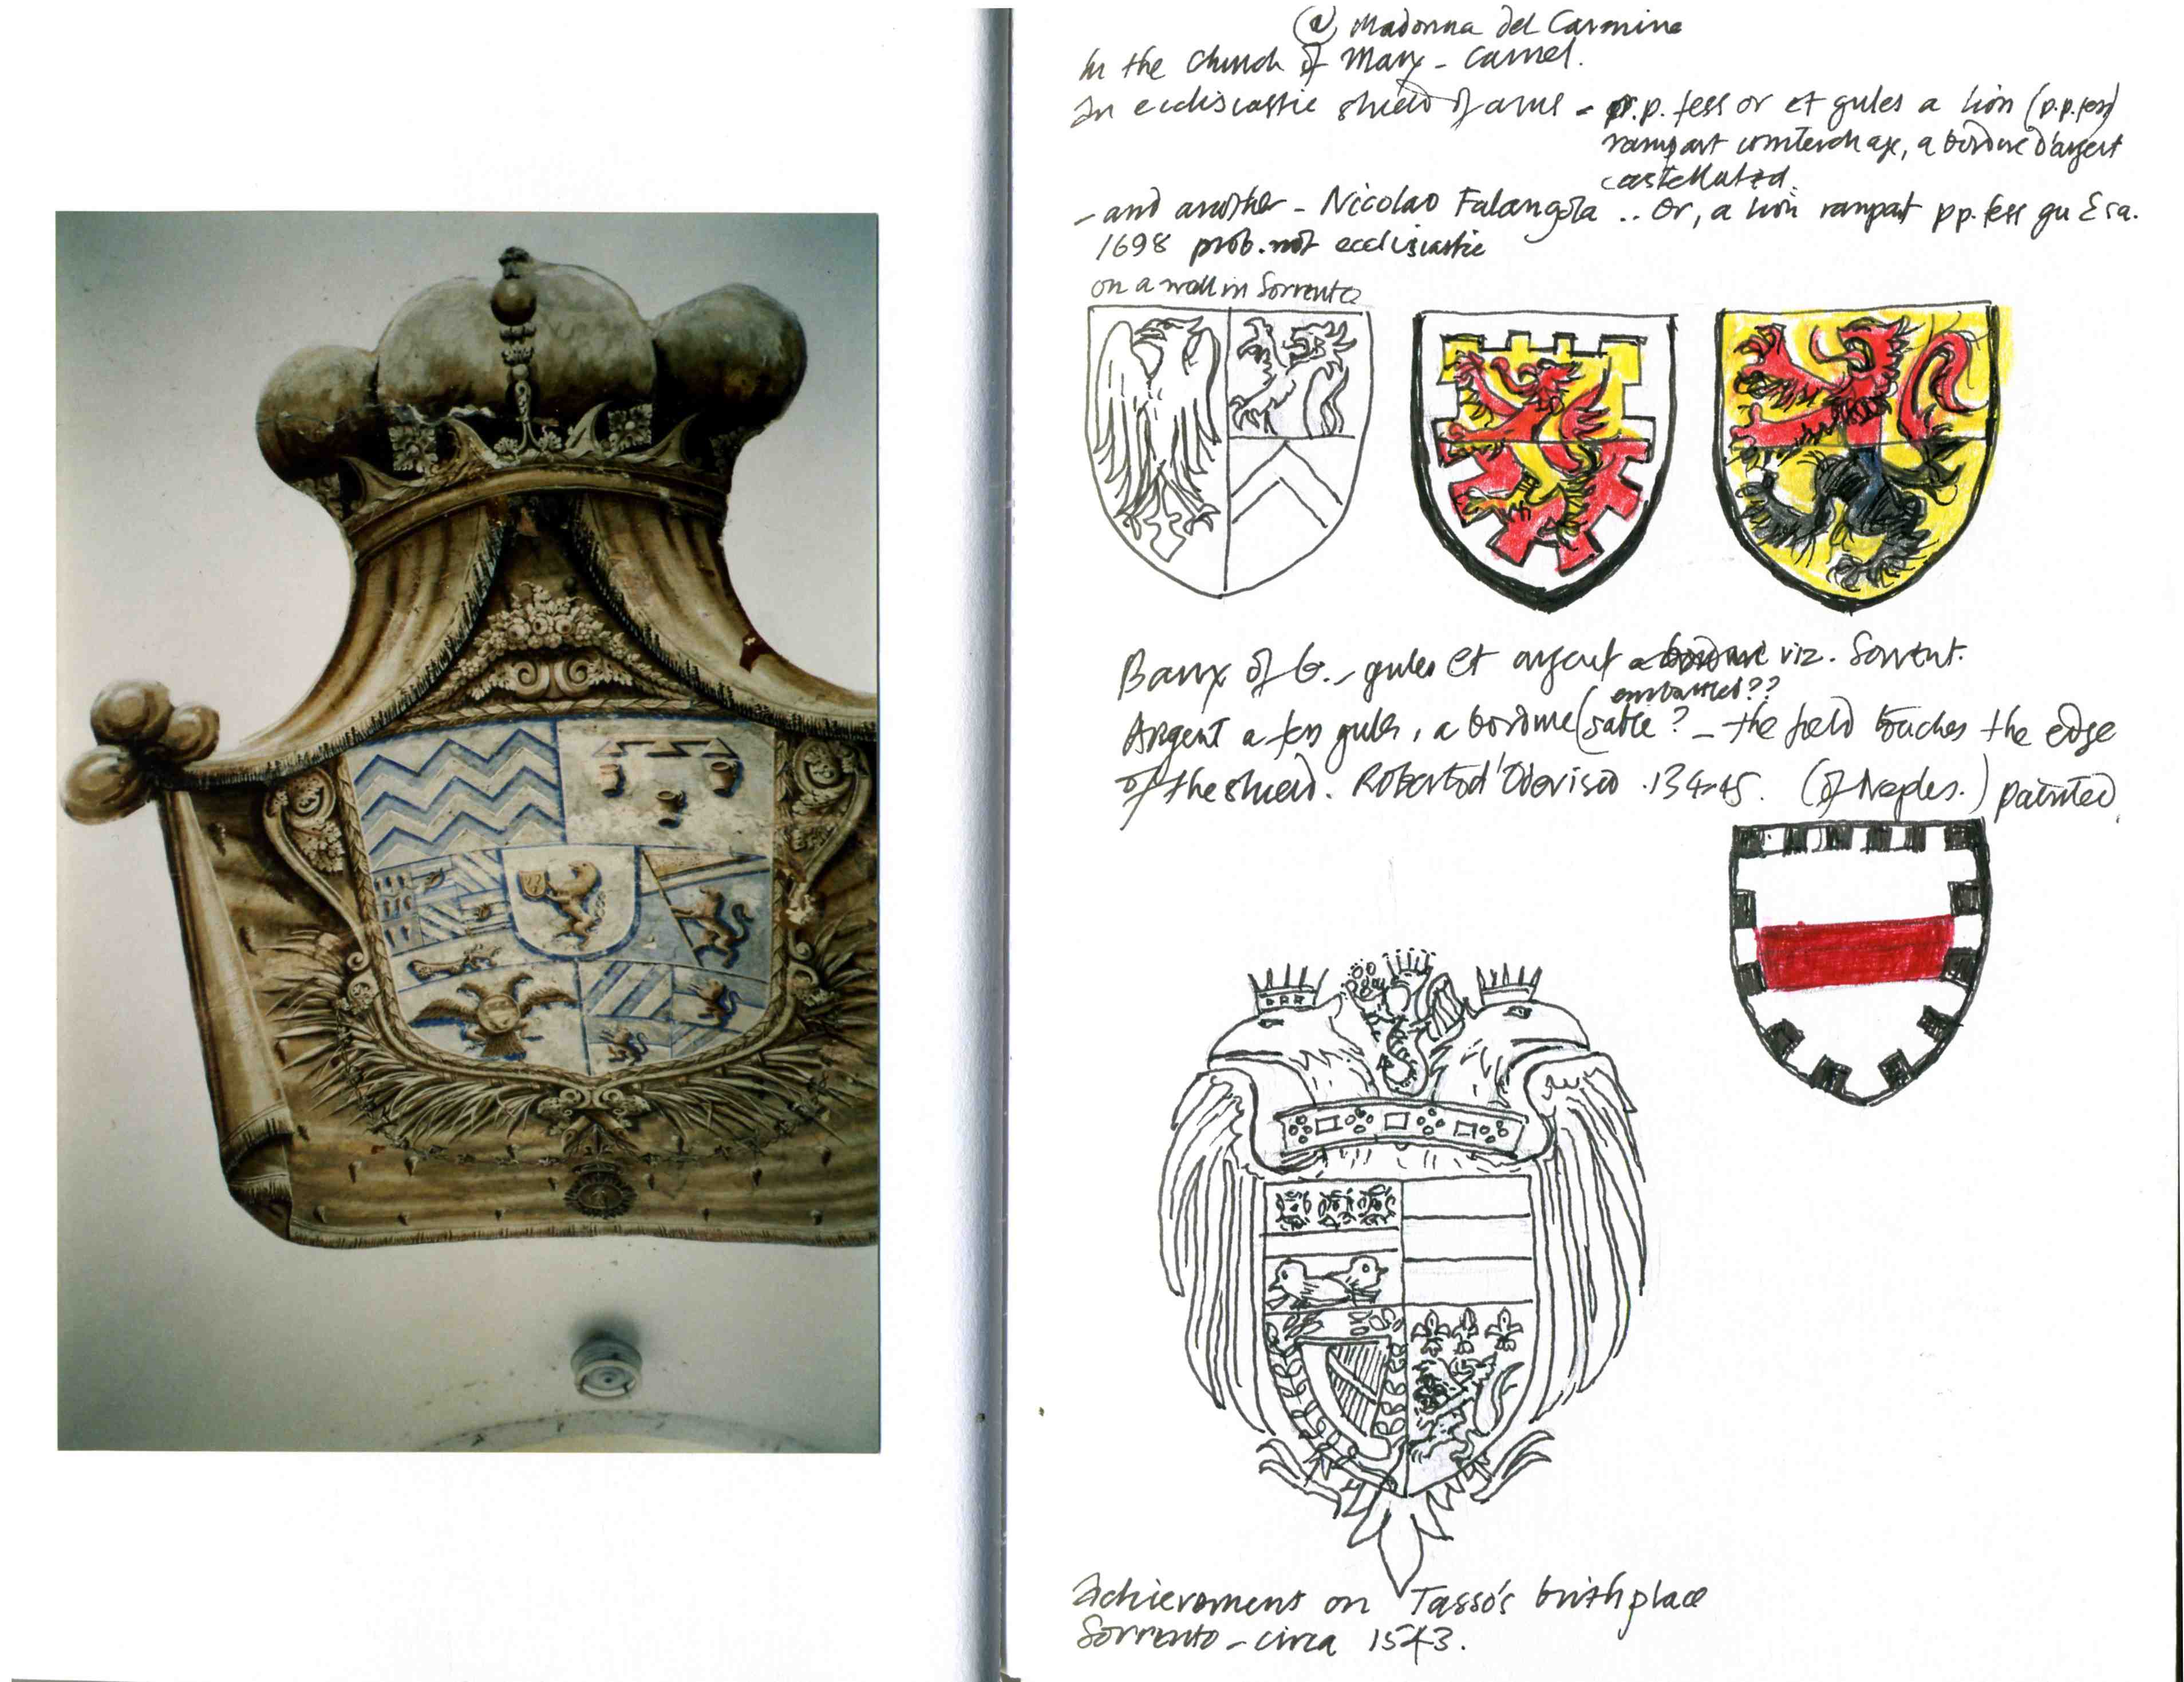 @ Madonna del Carmine
In the Church of Mary - Carmel.
In ecclisiastic shield of arms - p.p. fess or et gules a lion (p.p. fess)
rampart counterchage, a bordure d'argent
castellated.
- and another - Nicolao Falangola .. Or, a lion rampat pp. fess gu & sa.
1698 prob. not ecclisiastic
on a wall in Sorrento
of G. - gules et argent viz. Sorrent.
embattled??
Argent a fess gules, a bordure (sable? - the field touches the edge
of the shield. Roberto d'Oderisio .1344-45. (of Naples.) painted
Achievement on Tasso's birthplace
Sorrento - circa 1543.